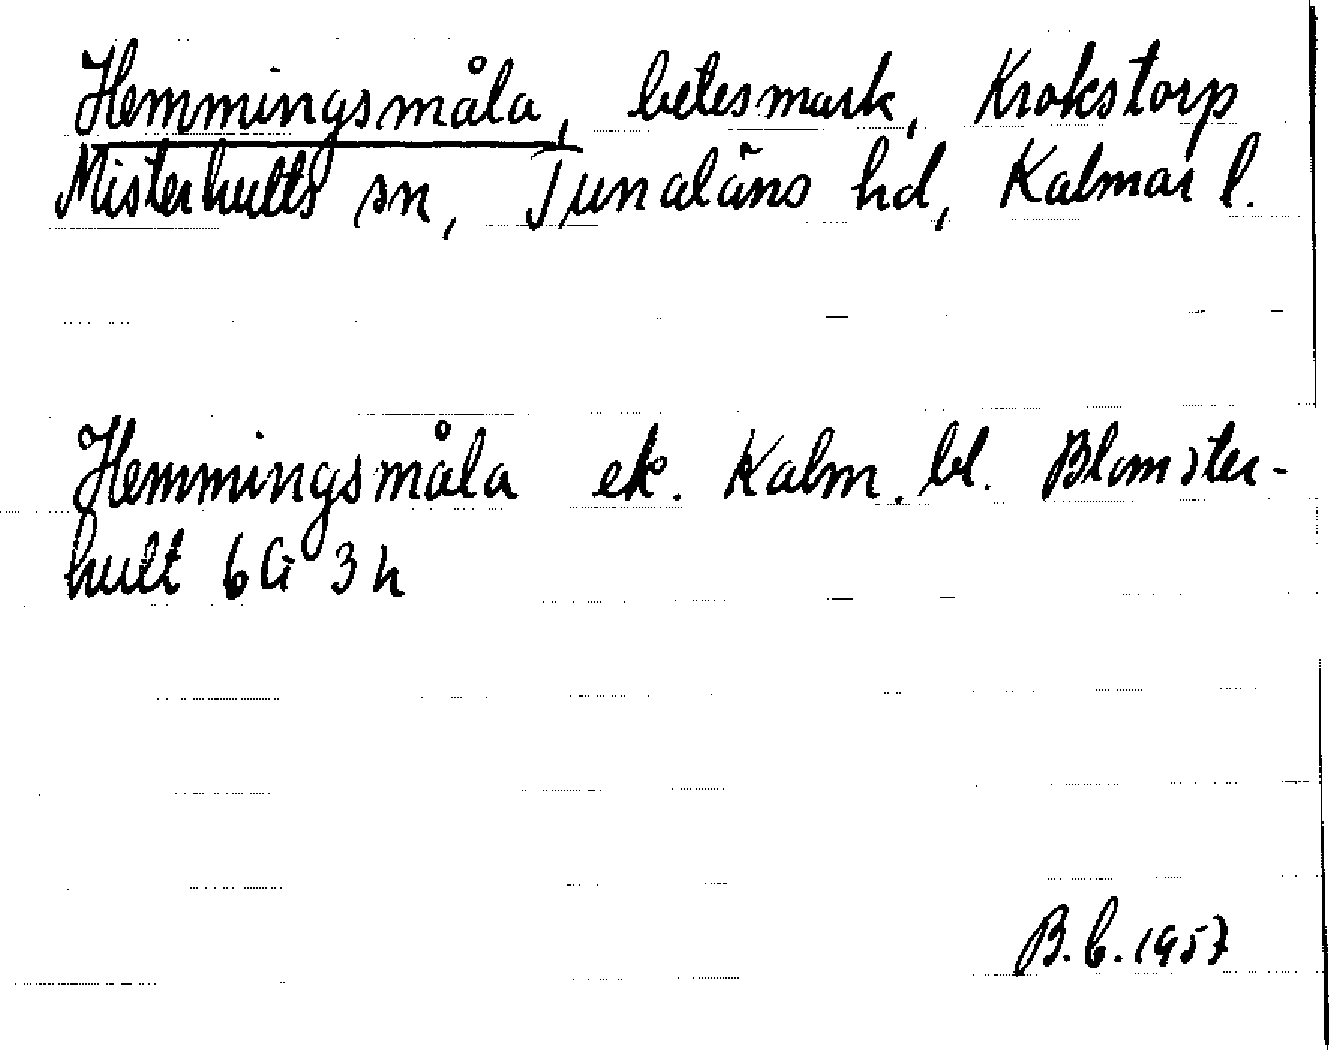 Hemmingsmåla, betesmark, Krokstorp
Misterhults sn, Tunaläns hd, Kalmar l.
Hemmingsmåla ek. Kalm. bl. Blomster-
hult 6G 3h
B.b. 1957